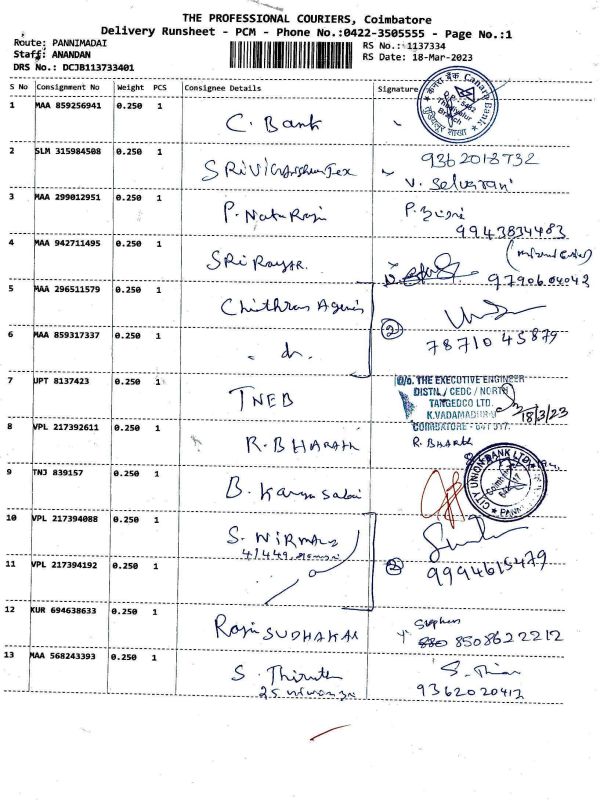 THE PROFESSIONAL COURIERS, Coimbatore
Delivery Runsheet - PCM - Phone No.:0422-3505555 - Page No.:1
Route: PANNIMADAI
RS No.:1137334
Staff: ANANDAN
RS Date: 18-Mar-2023
DRS No.: DCJB113733401
S No Consignment No Weight PCS Consignee Details Signature
1 MAA 859256941 0.250 1 C. Bank
केनरा बैंक Canara Bank
2 SLM 315984508 0.250 1 9362018732
V. Selvarani
3 MAA 299012951 0.250 1 P. Nataraj
9943834483
4 MAA 942711495 0.250 1 SRi Rayar.
9790604042
5 MAA 296511579 0.250 1 Chithras Agencis
2
6 MAA 859317337 0.250 1 7871045879
7 UPT 8137423 0.250 1 TNEB
O/o. THE EXECUTIVE ENGINEER
DISTN./ CEDC / NORTH
TANGEDCO LTD.
18/3/23
8 VPL 217392611 0.250 1 R. BHARATH R. BHARATH
9 TNJ 839157 0.250 1
CITY UNION BANK LTD.
10 VPL 217394088 0.250 1 S. NIRMALA
11 VPL 217394192 0.250 1 2 9994615479
12 KUR 694638633 0.250 1 Raju SUDHAKAR Stephen
8508622212
13 MAA 568243393 0.250 1
9362020412